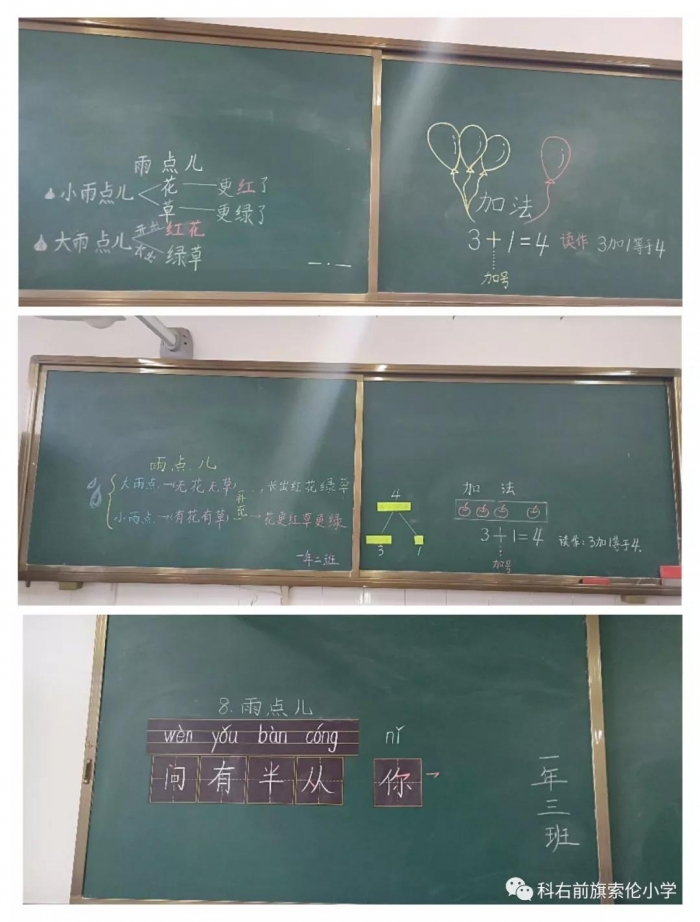 雨点儿
小雨点儿 花 更红了
草 更绿了
大雨点儿 红花
绿草
一.一
加法
3+1=4 读作 3加1等于4
加号
雨点儿
大雨点→(无花无草) 长出红花绿草
小雨点→(有花有草)→花更红草更绿
一年二班
4
3 1
加法
3+1=4 读作:3加1等于4.
加号
8.雨点儿
wèn yǒu bàn cóng nǐ
问有半从 你
一年三班
科右前旗索伦小学